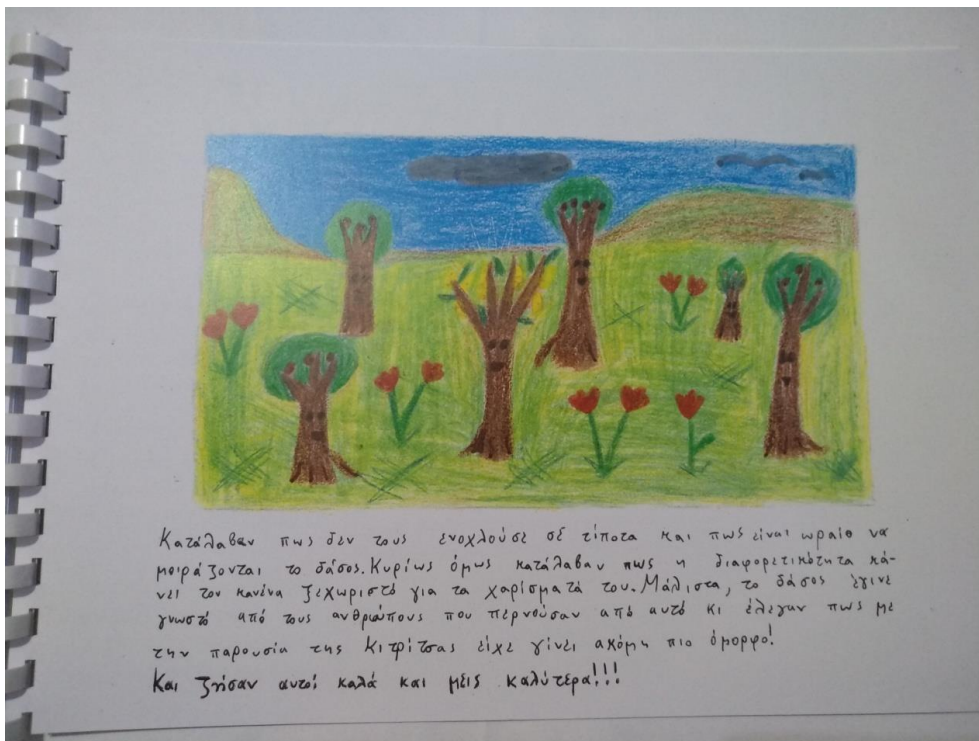 Κατάλαβαν πως δεν τους ενοχλούσε σε τίποτα και πως είναι ωραίο να
μοιράζονται το δάσος. Κυρίως όμως κατάλαβαν πως η διαφορετικότητα κά-
νει τον κανένα ξεχωριστό για τα χαρίσματά του. Μάλιστα, το δάσος έγινε
γνωστό από τους ανθρώπους που περνούσαν από αυτό κι έλεγαν πως με
την παρουσία της Κιτρίτσας είχε γίνει ακόμη πιο όμορφο!
Και ζήσαν αυτοί καλά και μεις καλύτερα!!!